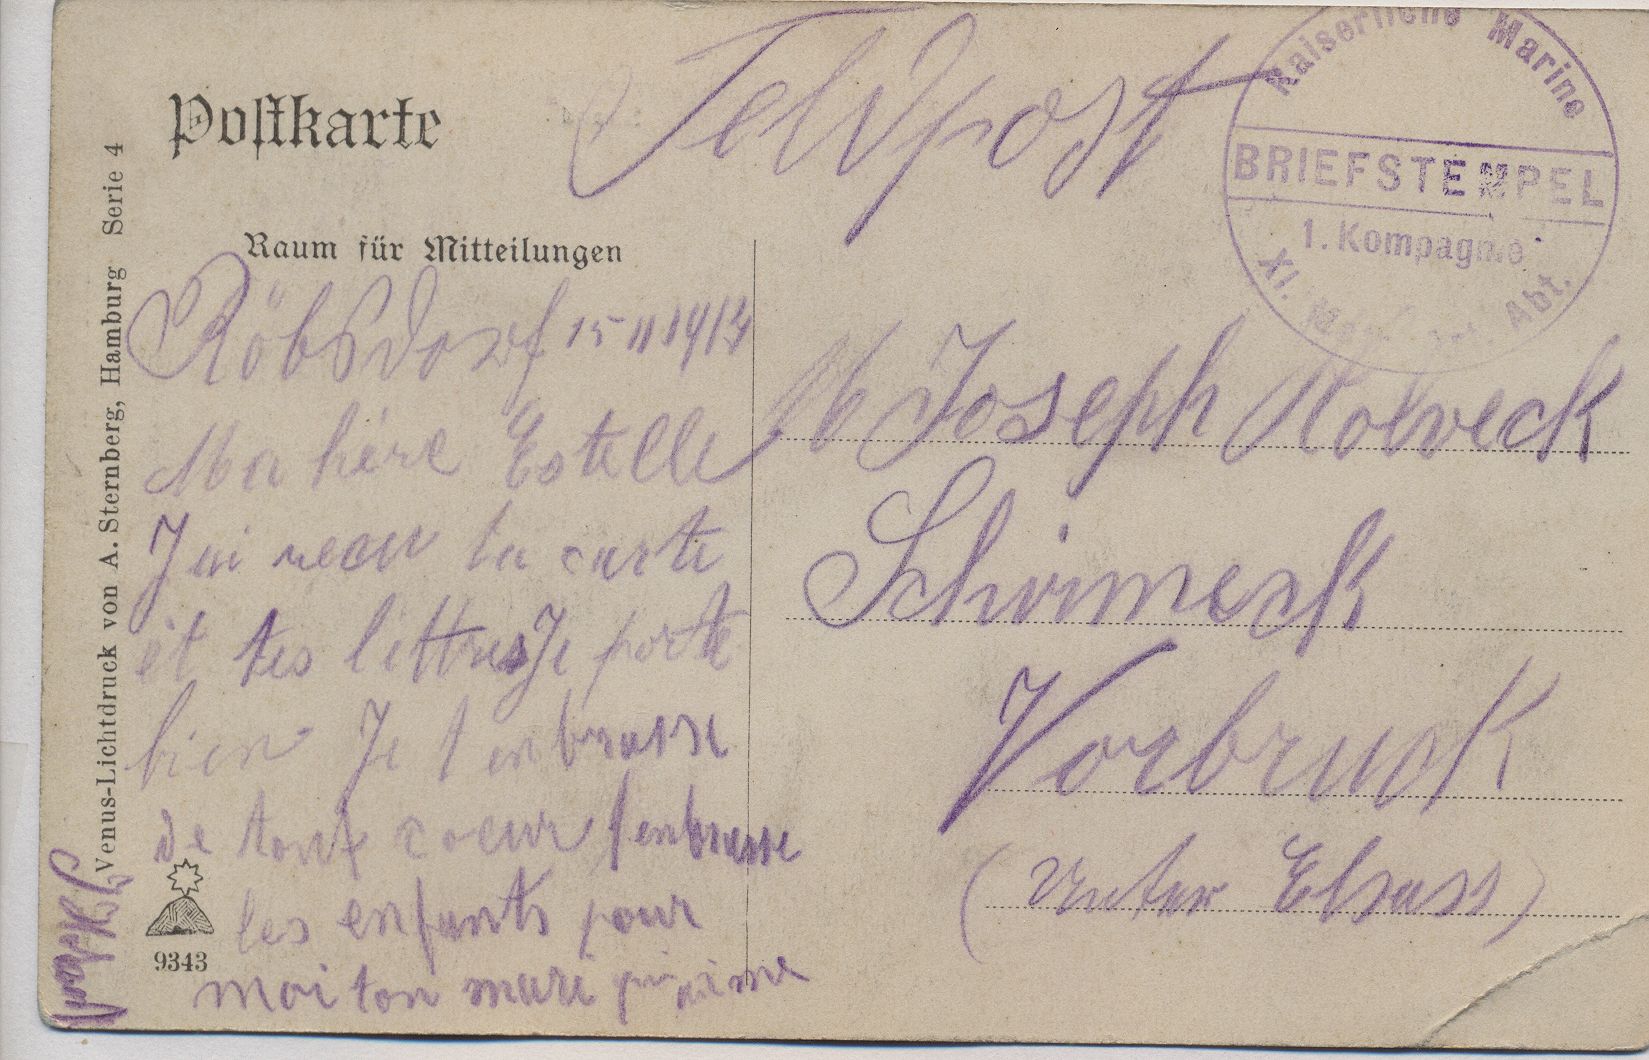 Postkarte
Feldpost
Kaiserliche Marine
BRIEFSTEMPEL
1. Kompagnie
XI. Abt.
Raum für Mitteilungen
Röbsdorf 15 11 191
Ma hère Estelle
J ai recu ta carte
et tes lettres Je porte
bien Je t enbrasse
de tout coeur t enbrasse
les enfants pour
moi ton mari qui aime
Joseph Holveck
Schirmeck
Vorbruck
(Unter Elsass)
Venus-Lichtdruck von A. Sternberg, Hamburg Serie 4
9343